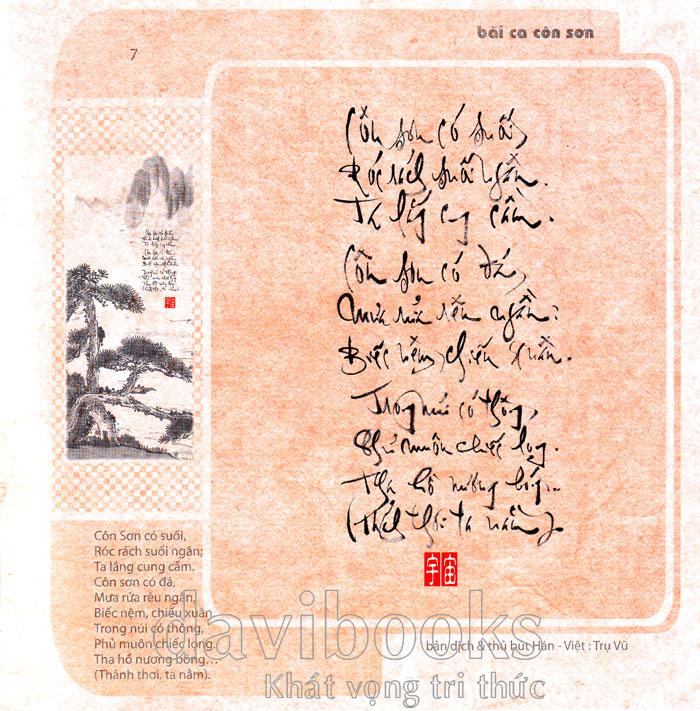 bài ca côn sơn
7
Côn sơn có suối,
Róc rách suối ngân.
Ta lắng cung cầm.
Côn sơn có đá,
Mưa rửa rêu ngần.
Biếc nệm, chiếu xuân.
Trong núi có thông,
Phủ muôn chiếc lọng.
Tha hồ nương bóng...
(Thảnh thơi ta nằm).
宇宙
Côn Sơn có suối,
Róc rách suối ngân;
Ta lắng cung cầm.
Côn sơn có đá,
Mưa rửa rêu ngần,
Biếc nệm, chiếu xuân.
Trong núi có thông,
Phủ muôn chiếc lọng.
Tha hồ nương bóng...
(Thảnh thơi, ta nằm).
bản dịch & thủ bút Hán - Việt : Trụ Vũ
davibooks
Khát vọng tri thức